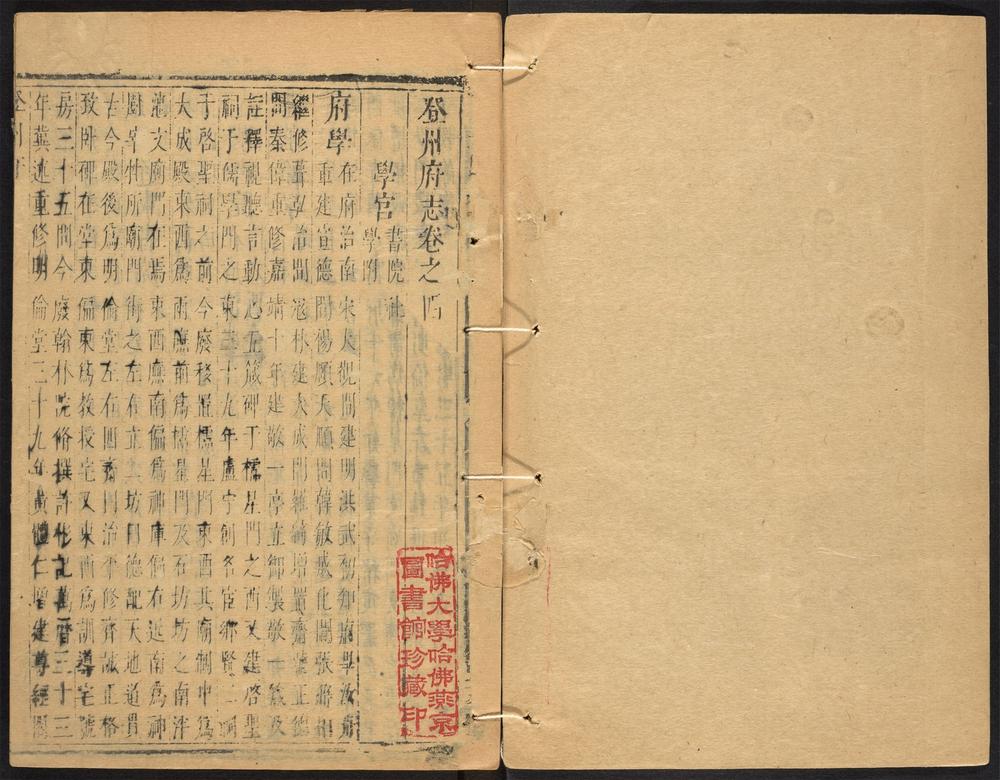 登州府志卷之四
學官 書院 社
學附
府學 在府治南宋大觀間建明洪武初知府
重建宣德間楊頤天順間韓敏成化間張
繼修葺弘治間建大成門正德
間秦偉重修嘉靖十年建敬一亭立御製敬一箴及
註釋視聽言動心五箴碑于櫺星門之西又建啓聖
祠于儒學門之東三十九年盧宁創名宦鄉賢二祠
于啓聖祠之前今廢移置櫺星門東西其廟制中爲
大成殿東西爲兩廡前爲櫺星門及石坊坊之南泮
池文廟門在焉東西廡南偏爲神庫偏右近南爲神
廚宰牲所廟門街之左右立二坊曰德配天地道貫
古今殿後爲明倫堂左右四齋曰治平修齊誠正格
致卧碑在堂東偏東爲教授宅又東西爲訓導宅號
房三十五間今廢翰林院脩撰許彬記萬曆三十三
年龔述重修明倫堂三十九年黃體仁增建尊經閣
登州府
哈佛大學哈佛燕京
圖書館珍藏印